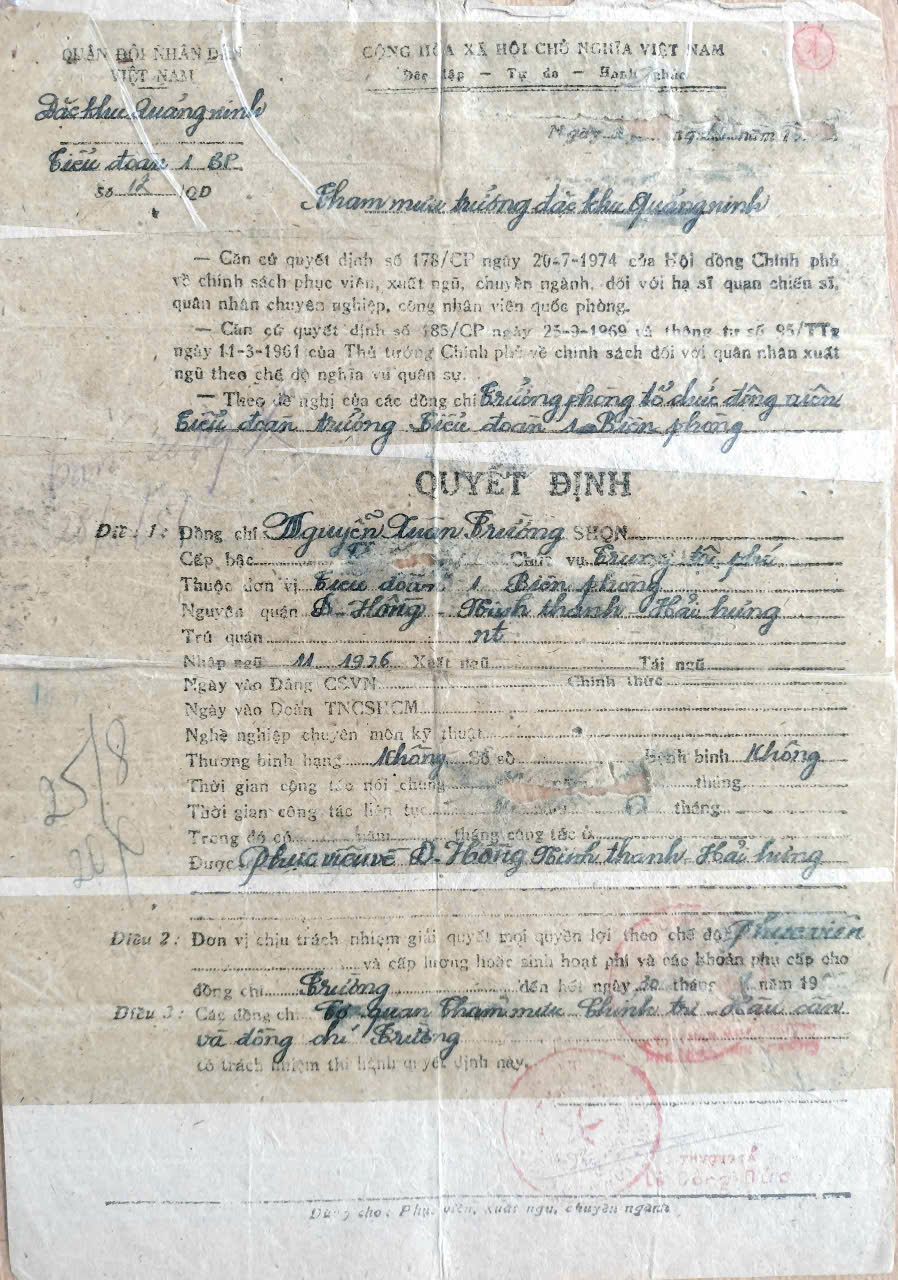 QUÂN ĐỘI NHÂN DÂN
VIỆT NAM
Đặc khu Quảng ninh
Tiểu đoàn 1 BP
Số 12 /QĐ
CỘNG HÒA XÃ HỘI CHỦ NGHĨA VIỆT NAM
Độc lập — Tự do — Hạnh phúc
1
Ngày năm 19
Tham mưu trưởng đặc khu Quảng ninh
— Căn cứ quyết định số 178/CP ngày 20-7-1974 của Hội đồng Chính phủ
về chính sách phục viên, xuất ngũ, chuyển ngành, đối với hạ sĩ quan chiến sĩ,
quân nhân chuyên nghiệp, công nhân viên quốc phòng.
— Căn cứ quyết định số 185/CP ngày 25-9-1969 và thông tư số 95/TTg
ngày 11-3-1961 của Thủ tướng Chính phủ về chính sách đối với quân nhân xuất
ngũ theo chế độ nghĩa vụ quân sự.
— Theo đề nghị của các đồng chí Trưởng phòng tổ chức động viên
Tiểu đoàn trưởng Tiểu đoàn 1 - Biên phòng
QUYẾT ĐỊNH
Điều 1: Đồng chí Nguyễn Xuân Trường SHQN
Cấp bậc Chức vụ Trung đội phó
Thuộc đơn vị Tiểu đoàn 1 Biên phòng
Nguyên quán Đ- Hồng - Ninh thanh - Hải hưng
Trú quán nt
Nhập ngũ 11 1976 Xuất ngũ Tái ngũ
Ngày vào Đảng CSVN Chính thức
Ngày vào Đoàn TNCSHCM
Nghề nghiệp chuyên môn kỹ thuật
Thương binh hạng Không Số sổ Bệnh binh Không
Thời gian công tác nói chung năm tháng
Thời gian công tác liên tục tháng
Trong đó có năm tháng công tác ở
Được Phục viên về Đ- Hồng Ninh thanh Hải hưng
25/8
Điều 2: Đơn vị chịu trách nhiệm giải quyết mọi quyền lợi theo chế độ Phục viên
và cấp lương hoặc sinh hoạt phí và các khoản phụ cấp cho
đồng chí Trường đến hết ngày 20 tháng năm 19
Điều 3: Các đồng chí Cơ quan Tham mưu Chính trị Hậu cần
và đồng chí Trường
có trách nhiệm thi hành quyết định này.
THƯỢNG TÁ
Dùng cho: Phục viên, xuất ngũ, chuyển ngành